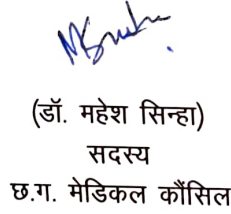 (डॉ. महेश सिन्हा)
सदस्य
छ.ग. मेडिकल कौंसिल